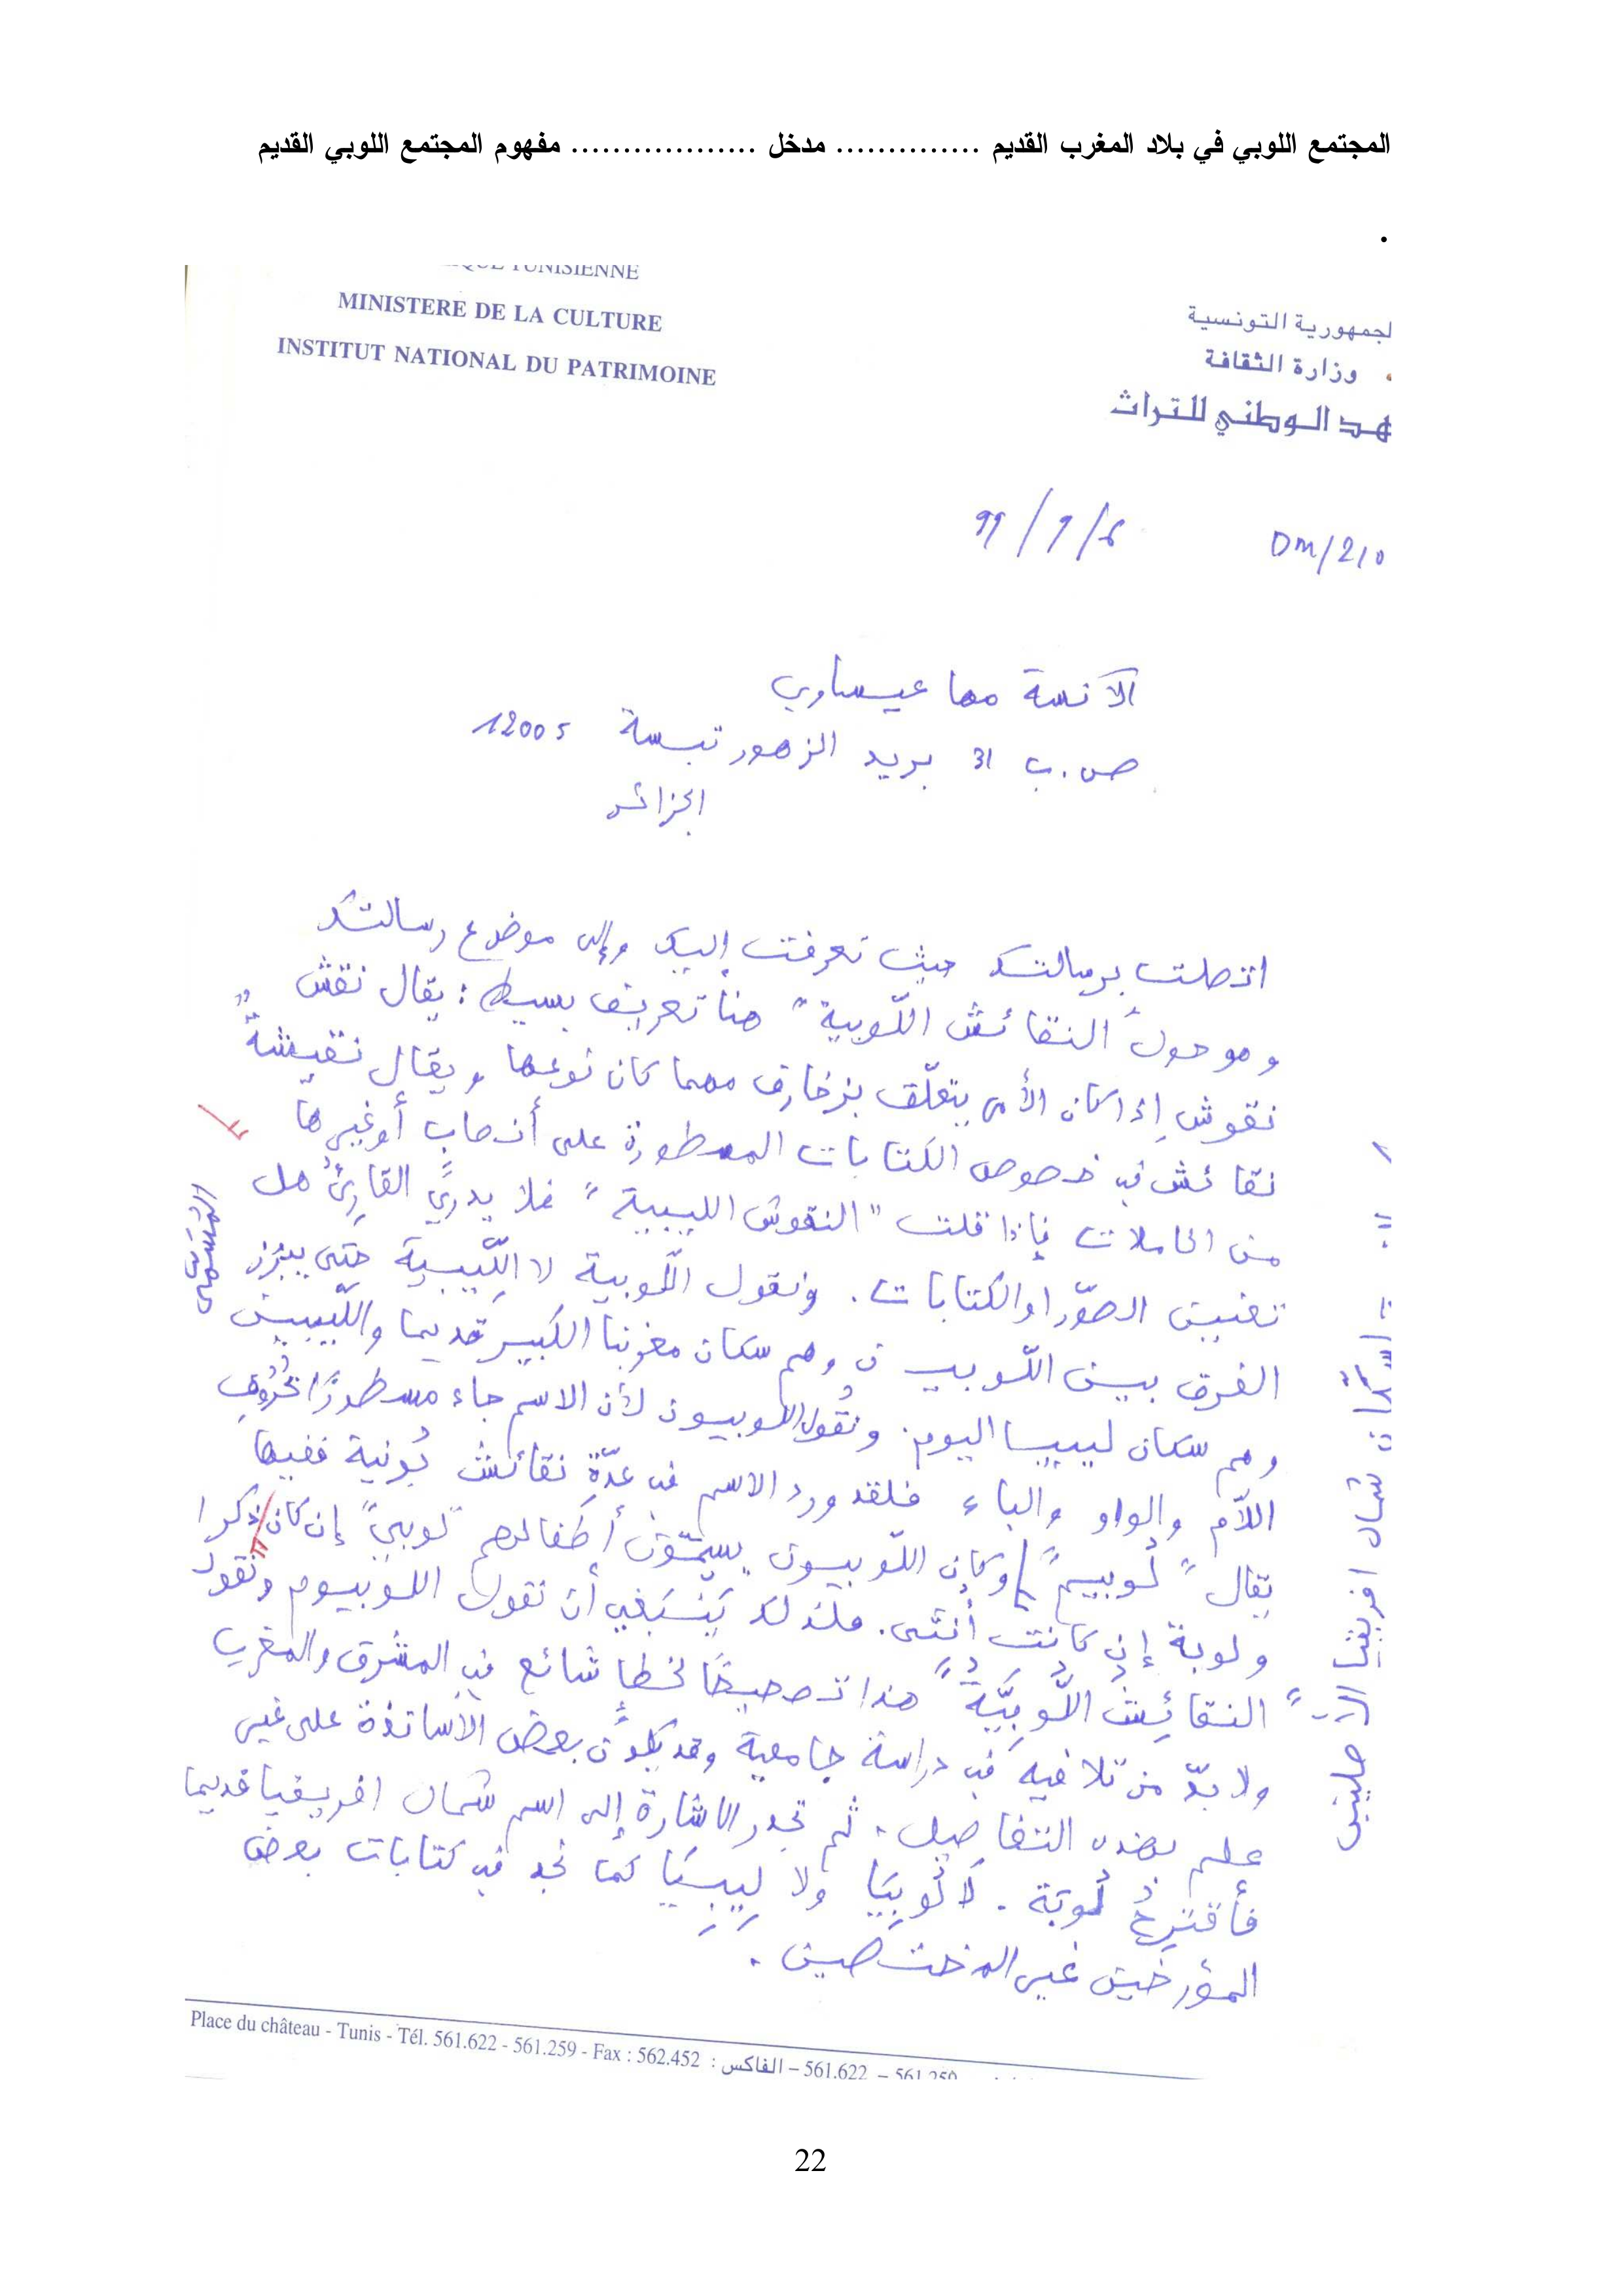 المجتمع اللوبي في بلاد المغرب القديم .............. مدخل .................. مفهوم المجتمع اللوبي القديم
.
TUNISIENNE
MINISTERE DE LA CULTURE
INSTITUT NATIONAL DU PATRIMOINE
لجمهورية التونسية
وزارة الثقافة
هد الوطني للتراث
99/9/6
DM/210
الآنسة مها عيساوي
ص.ب 31 بريد الزهور تبسة 12005
الجزائر
اتصلت برسالتك حيث تعرفت إليك وإلى موضوع رسالتك
وهو حول "النقائش اللّوبية" هنا تعريف بسيط : يقال نقش "
نقوش إذا كان الأمر يتعلّق بزخارف مهما كان نوعها ويقال نقيشة
نقائش في خصوص الكتابات المسطورة على أنصاب أو غيرها
من الحاملات فإذا قلت "النقوش الليبية" فلا يدري القارئ هل
تعنين الصوّر او الكتابات. ونقول اللّوبية لا اللّيبية حتى يبرز
الفرق بين اللّوبيين وهم سكان مغربنا الكبير قديما واللّيبيين
وهم سكان ليبيا اليوم. ونقول اللوبيون لأن الاسم جاء مسطورًا بحروف
اللاّم والواو والباء فلقد ورد الاسم في عدّة نقائش بونية ففيها
يقال "لوبيم" وكان اللّوبيون يسمّون أطفالهم "لوبي" إن كان ذكرا
ولوبة إن كانت أنثى. فلذلك ينبغي أن نقول اللوبيوم ونقول
"النقائش اللّوبيّة" هذا تصحيحًا لخطإ شائع في المشرق والمغرب
ولا بدّ من تلافيه في دراسة جامعية وقد يكون بعض الأساتذة على غير
علم بهذه التفاصيل. ثم تجدر الاشارة إلى اسم شمال افريقيا قديما
فأقترح لوبة. لا لوبيا ولا ليبيا كما نجد في كتابات بعض
المؤرخين غير المختصين.
شمال افريقيا الاصليين
Place du château - Tunis - Tél. 561.622 - 561.259 - Fax : 562.452 : الفاكس – 561.622 – 561.259
22